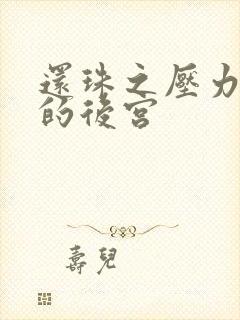 還珠之壓力
的後宮
壽兒